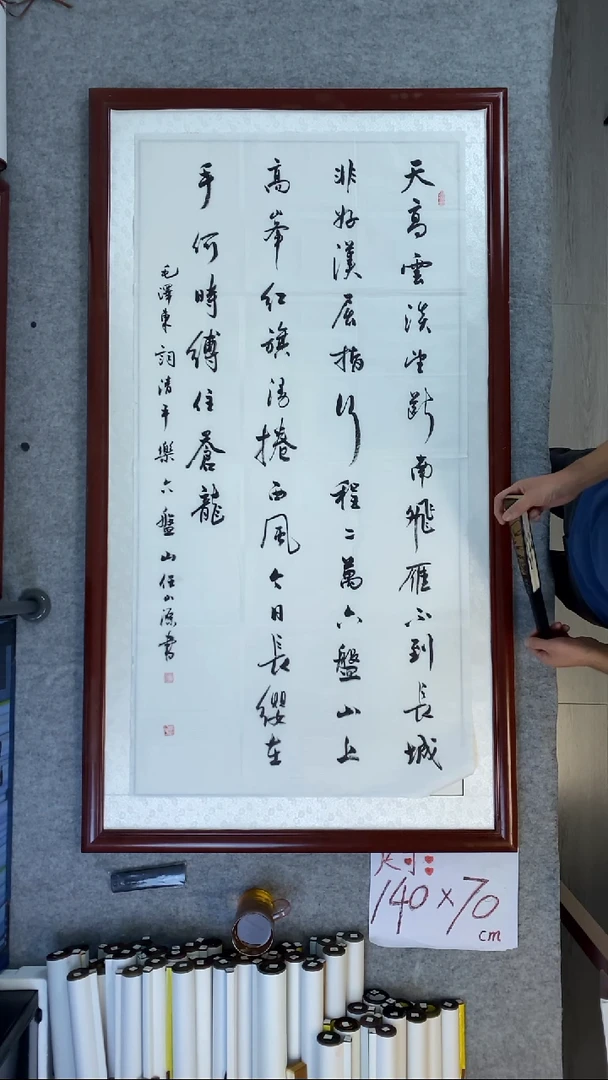 天高雲淡望斷南飛雁不到長城
非好漢屈指行程二萬六盤山上
高峯红旗漫捲西風今日長纓在
手何時縛住蒼龍
毛澤東詞清平樂六盤山任源書
尺寸:
140×70
cm